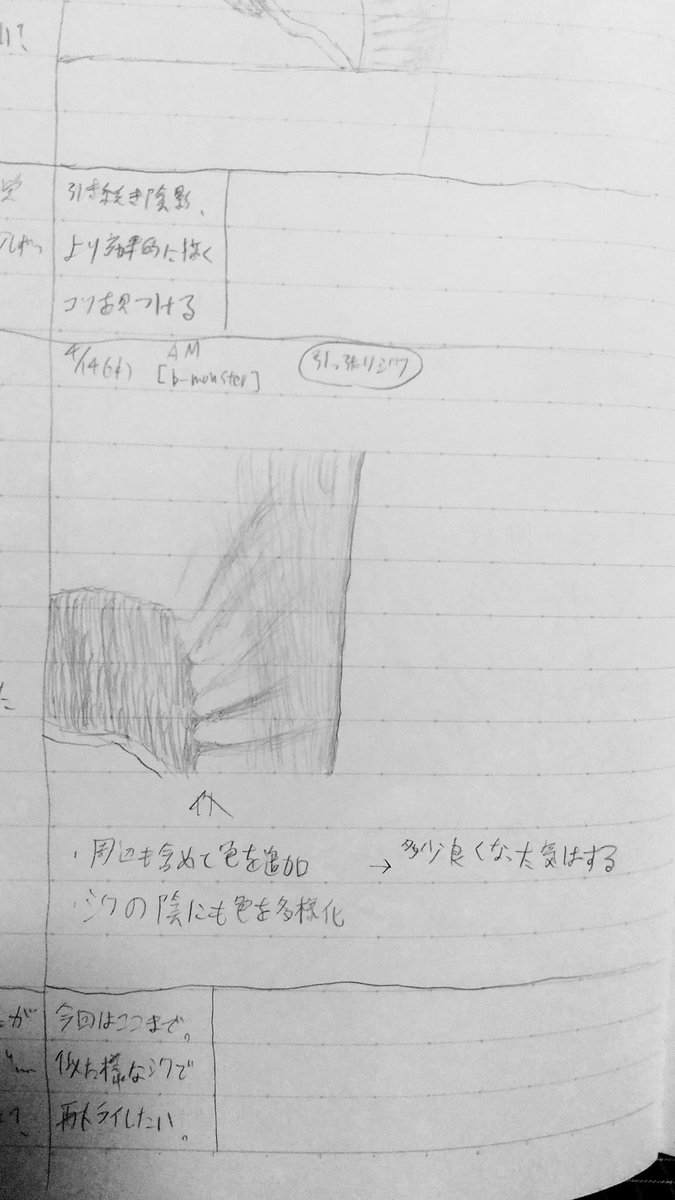 引き続き陰影、
より効果的に描く
コツ
つける
4/14(木) AM
[b-monster]
引っ張りジワ
・周辺も含めて色を追加
→ 多少良くなった気はする
・シワの陰にも色を多様化
が
今回はここまで。
似た様なシワで
再トライしたい。